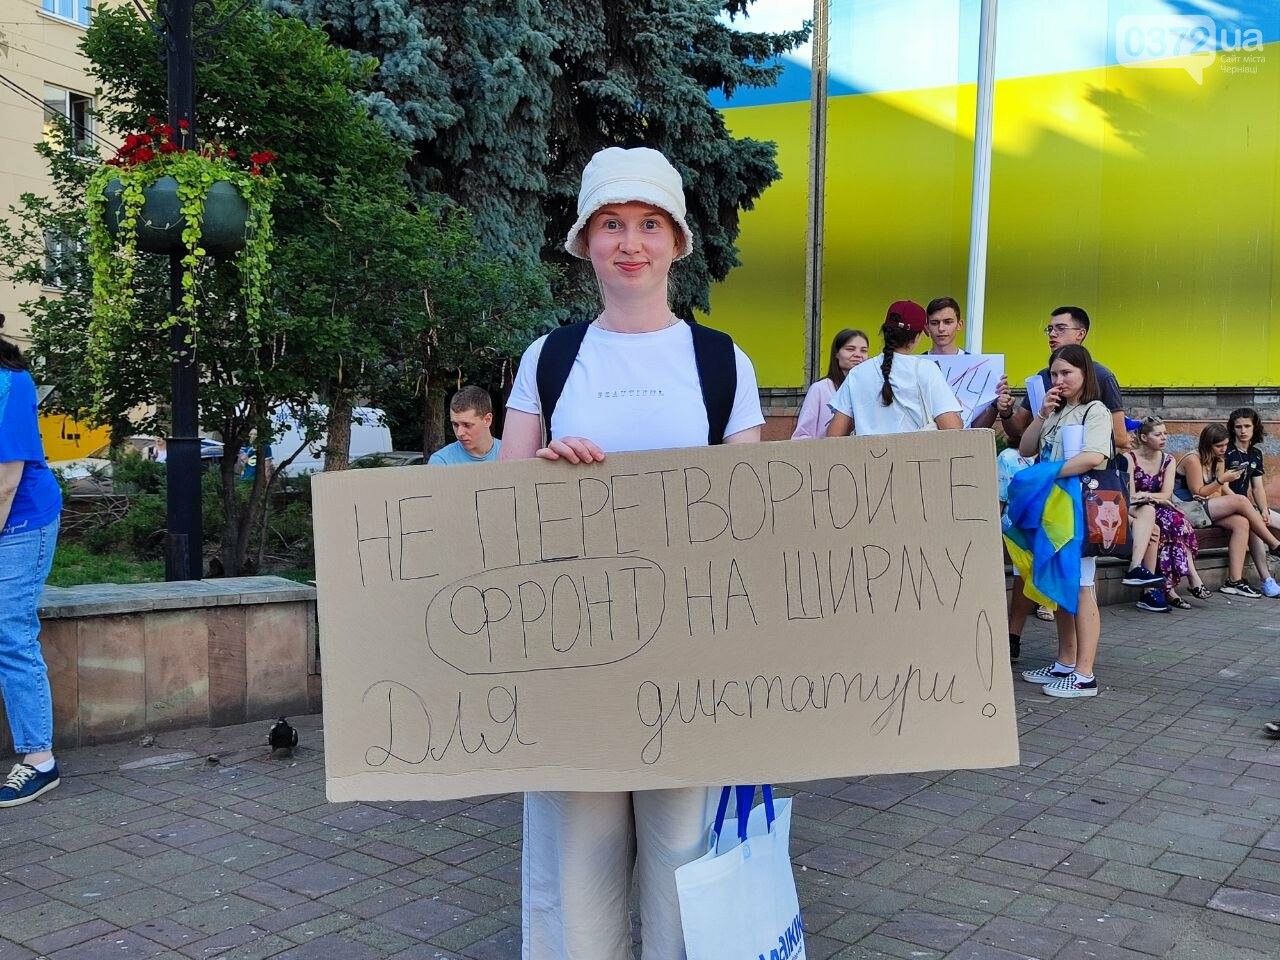 0372.ua
Сайт міста
Чернівці
BEAUTIFUL
НЕ ПЕРЕТВОРЮЙТЕ
ФРОНТ НА ШИРМУ
Для диктатури!